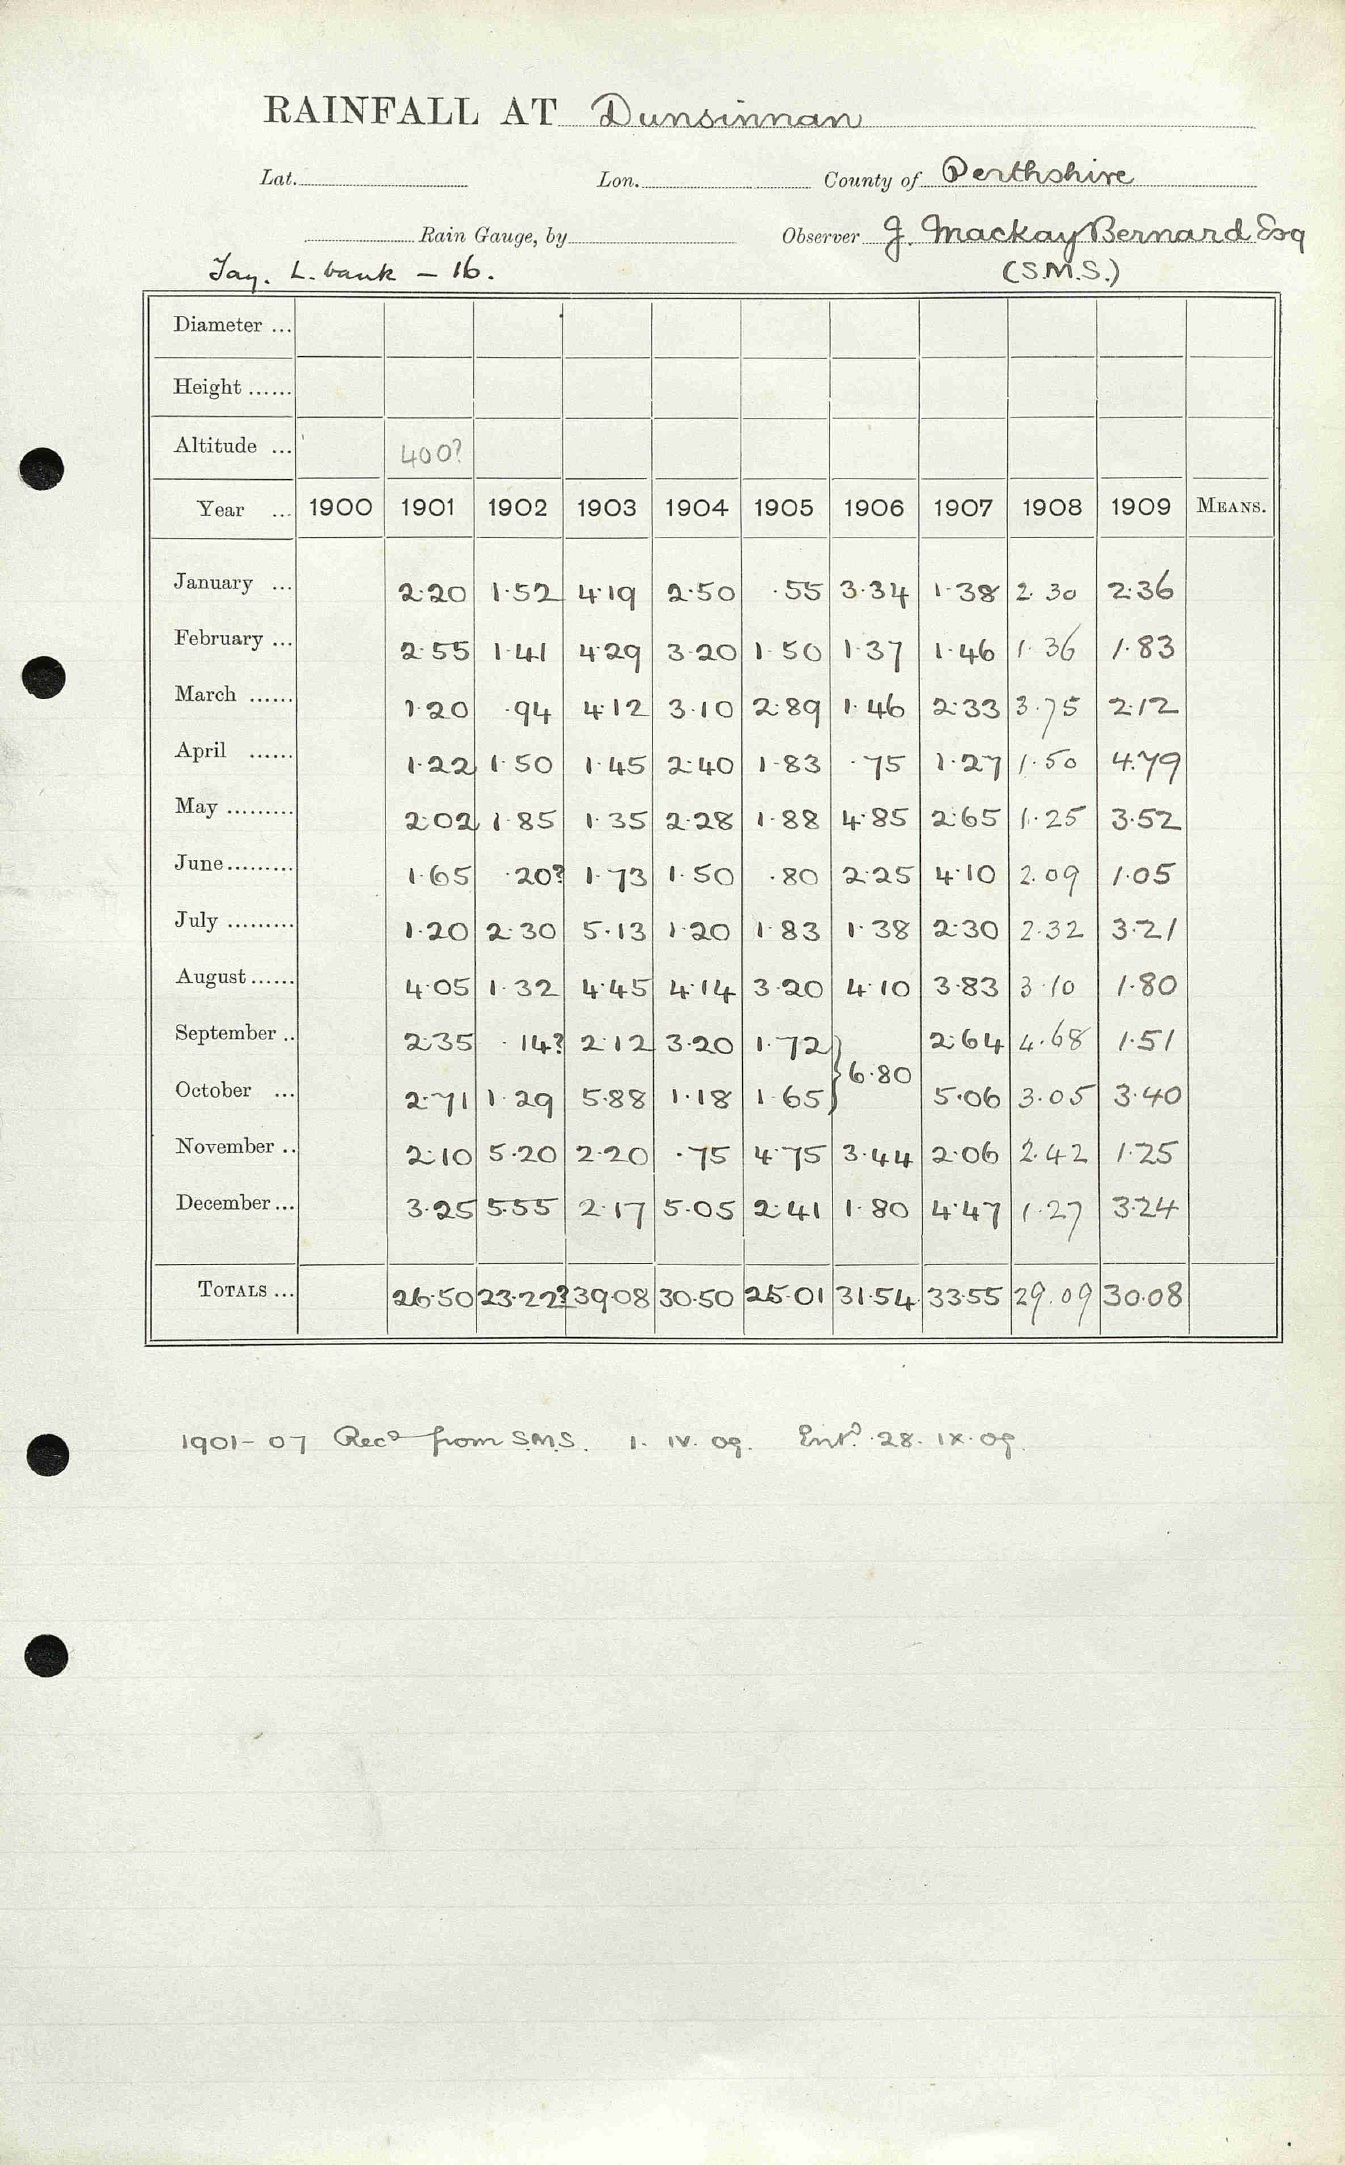 RAINFALL AT Dunsinnan
Lat. Lon. County of Perthshire
Rain Gauge, by Observer J. Mackay Bernard Esq
Tay. L. bank – 16. (S.M.S.)
Diameter ...
Height ......
Altitude ... 400?
Year ... 1900 1901 1902 1903 1904 1905 1906 1907 1908 1909 MEANS.
January ... 2·20 1·52 4·19 2·50 ·55 3·34 1·38 2·30 2·36
February ... 2·55 1·41 4·29 3·20 1·50 1·37 1·46 1·36 1·83
March ...... 1·20 ·94 4·12 3·10 2·89 1·46 2·33 3·75 2·12
April ...... 1·22 1·50 1·45 2·40 1·83 ·75 1·27 1·50 4·79
May ......... 2·02 1·85 1·35 2·28 1·88 4·85 2·65 1·25 3·52
June ......... 1·65 ·20? 1·73 1·50 ·80 2·25 4·10 2·09 1·05
July ......... 1·20 2·30 5·13 1·20 1·83 1·38 2·30 2·32 3·21
August ...... 4·05 1·32 4·45 4·14 3·20 4·10 3·83 3·10 1·80
September .. 2·35 ·14? 2·12 3·20 1·72 2·64 4·68 1·51
} 6·80
October ... 2·71 1·29 5·88 1·18 1·65 5·06 3·05 3·40
November .. 2·10 5·20 2·20 ·75 4·75 3·44 2·06 2·42 1·25
December ... 3·25 5·55 2·17 5·05 2·41 1·80 4·47 1·27 3·24
TOTALS ... 26·50 23·22? 39·08 30·50 25·01 31·54 33·55 29·09 30·08
1901–07 Recd from S.M.S. 1. IV. 09. Entd. 28. IX. 09.